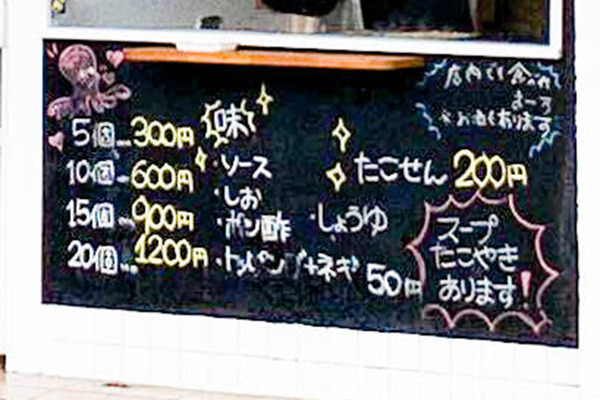 5個…300円
10個…600円
15個…900円
20個…1200円
味
・ソース
・しお
・ポン酢 ・しょうゆ
・トッピング+ネギ 50円
たこせん 200円
店内でも食べれ
まーす
あります
スープ
たこやき
あります!